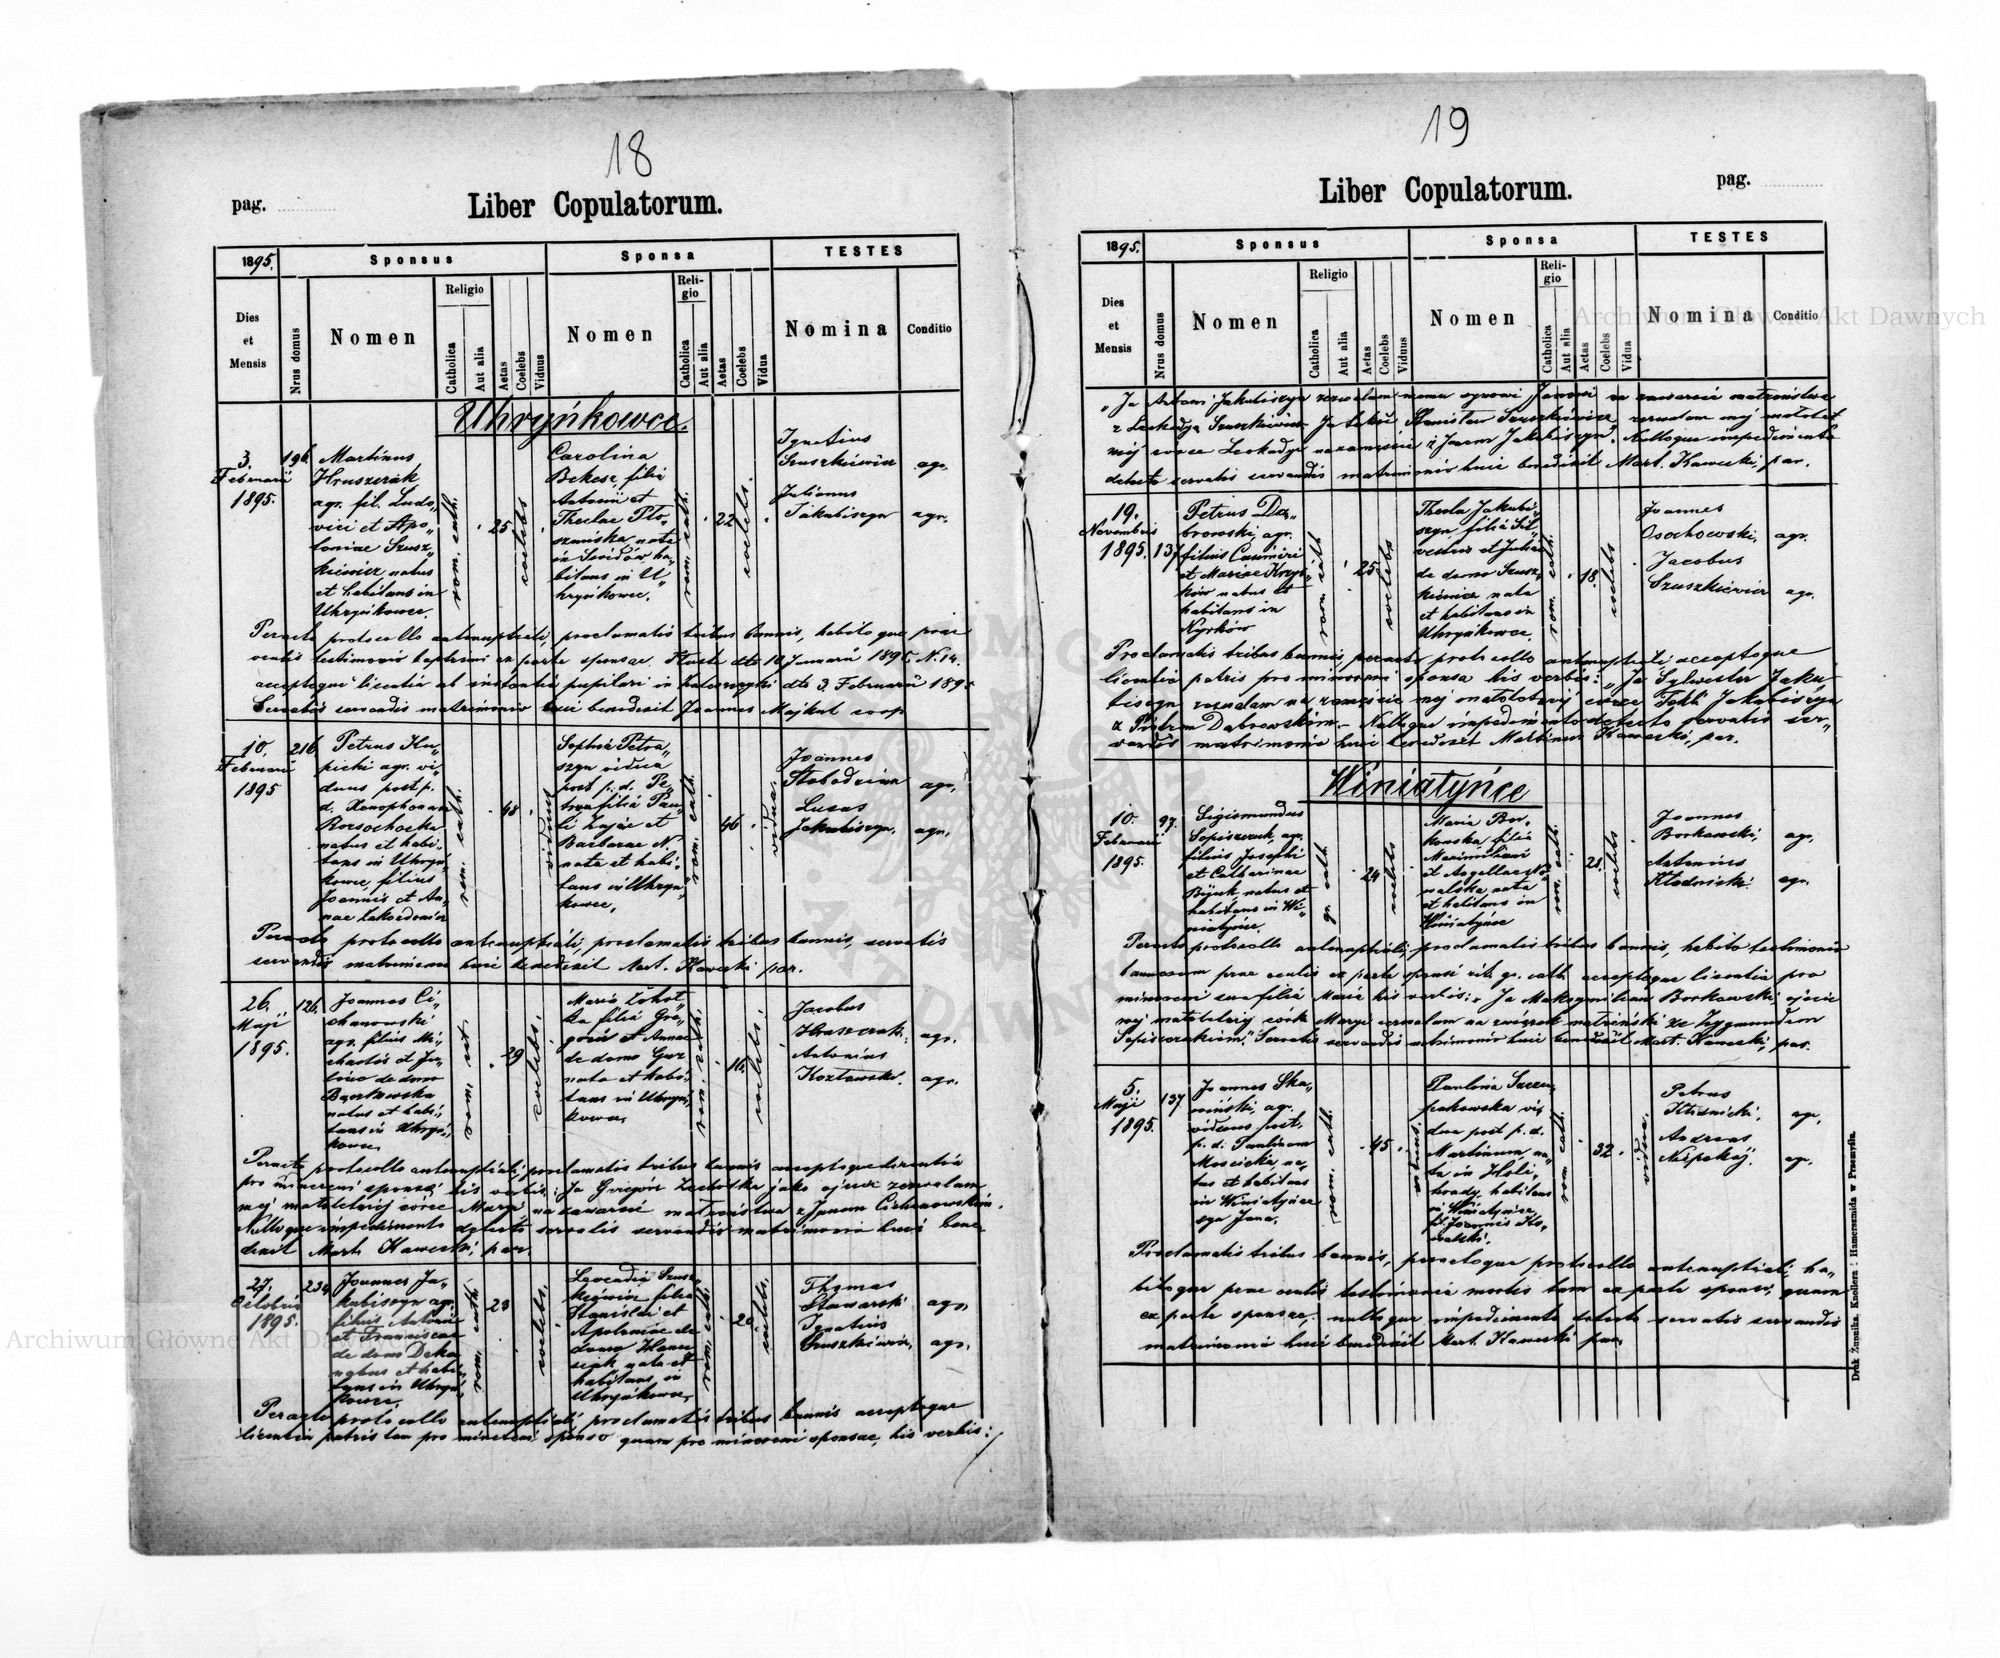 18
pag.
Liber Copulatorum.
1895.
Sponsus
Sponsa
TESTES
Dies
et
Mensis
Nrus domus
Nomen
Religio
Catholica
Aut alia
Aetas
Coelebs
Viduus
Nomen
Reli-
gio
Catholica
Aut alia
Aetas
Coelebs
Vidua
Nomina
Conditio
Uhryńkowce.
3.
Februarii
1895.
196
Martinus
Hruszczak
agr. fil. Ludo„
vici et Apo„
loniae Szusz„
kiewicz natus
et habitans in
Uhryńkowce.
rom. cath.
25
coelebs
Carolina
Bekesz, filia
Antonii et
Theclae
nata
in ha„
bitans in U„
hryńkowce.
rom. cath.
22
coelebs.
Ignatius
Szuszkiewicz agr.
Julianus
Jakubiszyn agr.
Peracto protocollo antenuptiali, proclamatis tribus bannis, habitoque prae
oculis testimonio baptismi ex parte sponsae 10 Januarii 1895, N. 14.
acceptaque licentia ab instantia pupilari in Zaleszczyki dto 3. Februarii 1895
Servatis servandis matrimonio huic benedixit Joannes Majkut coop
10.
Februarii
1895
216
Petrus Ku„
picki agr. vi„
duus post p.
d. Xenophonam
Rozsochacka
natus et habi„
tans in Uhryń„
kowce, filius
Joannis et An„
nae
rom. cath.
48
viduus
Sophia Petra„
szyn vidua
post p. d. Pe„
trum filia Pau„
li Zając et
Barbarae N.
nata et habi„
tans in Uhryń„
kowce.
rom. cath.
46
vidua.
Joannes
Słobodzian agr.
Lucas
Jakubiszyn. agr.
Peracto protocollo antenuptiali, proclamatis tribus bannis, servatis
servandis matrimonio huic benedixit Mart. Kawecki par.
26.
Maji
1895.
126.
Joannes Ci„
chanowski
agr. filius Mi„
chaelis et Ju„
liae de domo
natus et habi„
tans in Uhryń„
kowce
29
coelebs.
Maria Zchot„
ka filia Gre„
gorii et Annae
de domo
nata et habi„
tans in Uhryń„
kowce.
rom. cath.
coelebs.
Jacobus
Hruszczak. agr.
Antonius
Kozłowski. agr.
Peracto protocollo antenuptiali, proclamatis tribus bannis acceptaque licentia
pro minoreni sponsa, his verbis: Ja Grzegórz jako ojciec zezwalam
mej małoletniej córce Maryi na zawarcie małżeństwa z Janem Cichanowskim.
Nulloque impedimento detecto servatis servandis matrimonio huic bene
dixit Mart. Kawecki, par.
27.
Octobris
1895.
234
Joannes Ja„
kubiszyn agr.
filius Antonii
et Franciscae
de domo
natus et habi„
tans in Uhryń„
kowce.
rom. cath.
23
coelebs.
Leocadia Szusz„
kiewicz filia
Stanislai et
Apoloniae de
domo
nata et
habitans in
Uhryńkowce.
rom. cath.
20
coelebs.
Thomas
Stawarski agr.
Ignatius
Szuszkiewicz. agr.
Peracto protocollo antenuptiali, proclamatis tribus bannis acceptaque
licentia patris tam pro minoreni sponso quam pro minoreni sponsae, his verbis:
19
pag.
Liber Copulatorum.
1895.
Sponsus
Sponsa
TESTES
Dies
et
Mensis
Nrus domus
Nomen
Religio
Catholica
Aut alia
Aetas
Coelebs
Viduus
Nomen
Reli-
gio
Catholica
Aut alia
Aetas
Coelebs
Vidua
Nomina
Conditio
„Ja Antoni Jakubiszyn zezwalam memu synowi Janowi na zawarcie małżeństwa
z Leokadyą Szuszkiewicz. Ja także Stanisław Szuszkiewicz zezwalam mej małolet
niej córce Leokadyi na zamęście z Janem Jakubiszyn". Nulloque impedimento
detecto servatis servandis matrimonio huic benedixit Mart. Kawecki, par.
19.
Novembris
1895.
137
Petrus Dą„
browski, agr.
filius Casimiri
et Mariae
natus et
habitans in
Nyrków
rom. cath.
25
coelebs
Thecla Jakubi„
szyn filia Sil„
vestris et Juliae
de domo Szusz„
kiewicz nata
et habitans in
Uhryńkowce.
rom. cath.
18.
coelebs
Joannes
Osochowski, agr.
Jacobus
Szuszkiewicz agr.
Proclamatis tribus bannis, peracto protocollo antenuptiali acceptaque
licentia patris pro minoreni sponsa his verbis: „Ja Sylwester Jaku„
biszyn zezwalam na zamęście mej małoletniej córce Tekli Jakubiszyn
z Piotrem Dąbrowskim. – Nulloque impedimento detecto servatis ser„
vandis matrimonio huic benedixit Martinus Kawecki, par.
Winiatyńce
10.
Februarii
1895.
97.
Sigismundus
Sopiszczuk, agr.
filius Josephi
et Catharinae
natus et
habitans in Wi„
niatyńce.
gr. cath.
24
coelebs
Maria Bor„
kowska filia
Maximiliani
et
nata
et habitans in
Winiatyńce
rom. cath.
21.
coelebs
Joannes
Borkowski, agr.
Antonius
agr.
Peracto protocollo antenuptiali, proclamatis tribus bannis, habito testimonio
bannorum prae oculis ex parte sponsi rit. gr. cath. acceptaque licentia pro
minoreni sua filia Maria his verbis: „Ja Maksymilian Borkowski, ojciec
mej małoletniej córki Maryi zezwalam na związek małżeński ze Zygmundem
Sopiszczukiem". Servatis servandis matrimonio huic benedixit Mart. Kawecki, par.
5.
Maji
1895.
137
Joannes Ska„
wiński, agr.
viduus post
p. d. Paulinam
Mościcka, na„
tus et habitans
in Winiatyńce
syn Jana.
rom. cath.
45
viduus.
Paulina Szcze„
pakowska vi„
dua post p. d.
Martinum, na„
ta in Holi„
hrady, habitans
in Winiatyńce
fil. Joannis Ko„
walski.
rom. cath.
32
vidua.
Petrus
agr.
Andreas
agr.
Proclamatis tribus bannis, peractoque protocollo antenuptiali, ha„
bitoque prae oculis testimonio mortis tam ex parte sponsi, quam
ex parte sponsae, nulloque impedimento detecto servatis servandis
matrimonio huic benedixit Mart. Kawecki par.
Druk Żupnika, Knollera i Hamerszmida w Przemyślu.
Archiwum Główne Akt Dawnych
Archiwum Główne Akt Dawnych